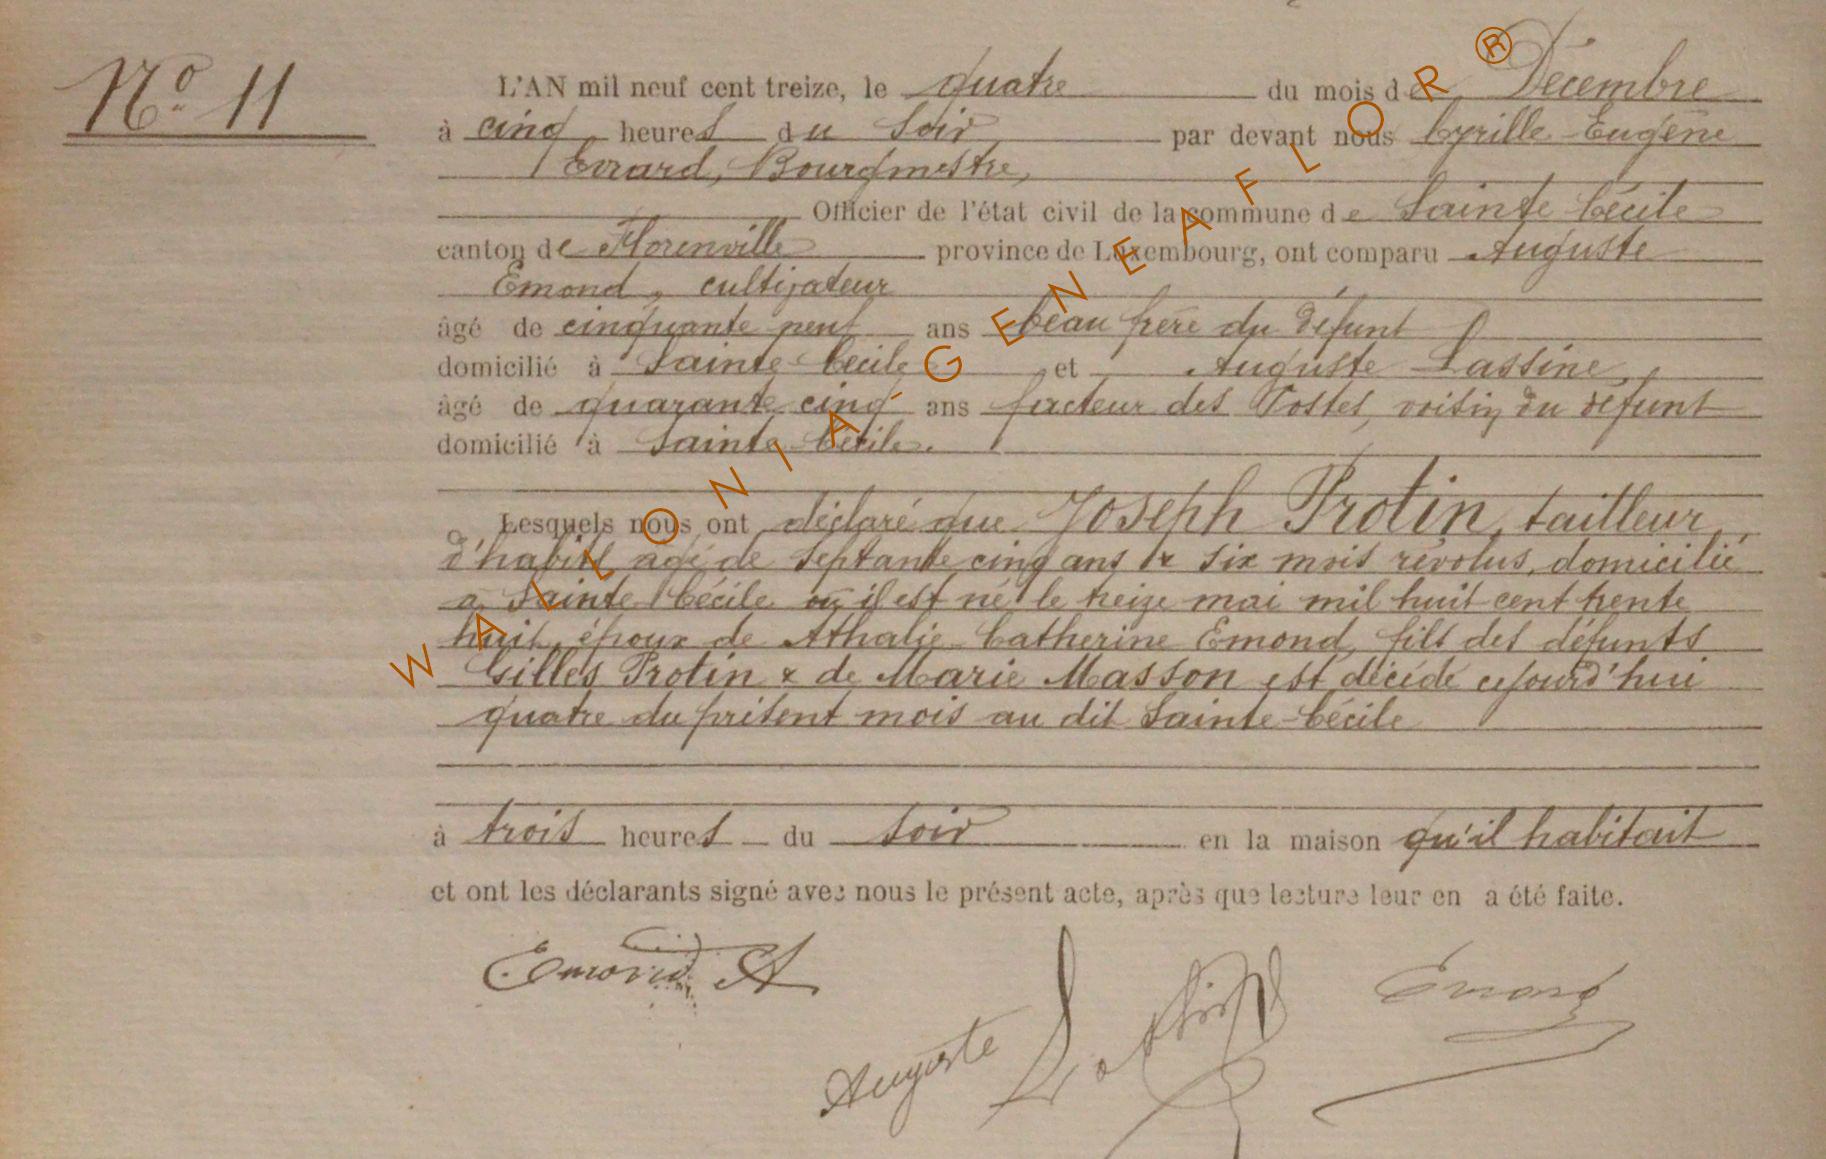 No. 11
L'AN mil neuf cent treize, le quatre du mois de Décembre
à cinq heures du soir par devant nous Cyrille Eugène
Evrard, Bourgmestre,
Officier de l'état civil de la commune de Sainte Cécile
canton de Florenville province de Luxembourg, ont comparu Auguste
Emond, cultivateur
âgé de cinquante neuf ans beau frère du défunt
domicilié à Sainte-Cécile et Auguste Lassine,
âgé de quarante cinq ans facteur des Postes, voisin du défunt
domicilié à Sainte-Cécile.
Lesquels nous ont déclaré que Joseph Protin, tailleur
d'habits, agé de septante cinq ans & six mois révolus, domicilié
à Sainte Cécile où il est né le treize mai mil huit cent trente
huit, époux de Athalie Catherine Emond, fils des défunts
Gilles Protin & de Marie Masson est décédé cejourd'hui
quatre du présent mois au dit Sainte-Cécile
à trois heures du soir en la maison qu'il habitait
et ont les déclarants signé avec nous le présent acte, après que lecture leur en a été faite.
Emond A
Auguste Lassine
Evrard
WALLONIA-GENEAFLOR®